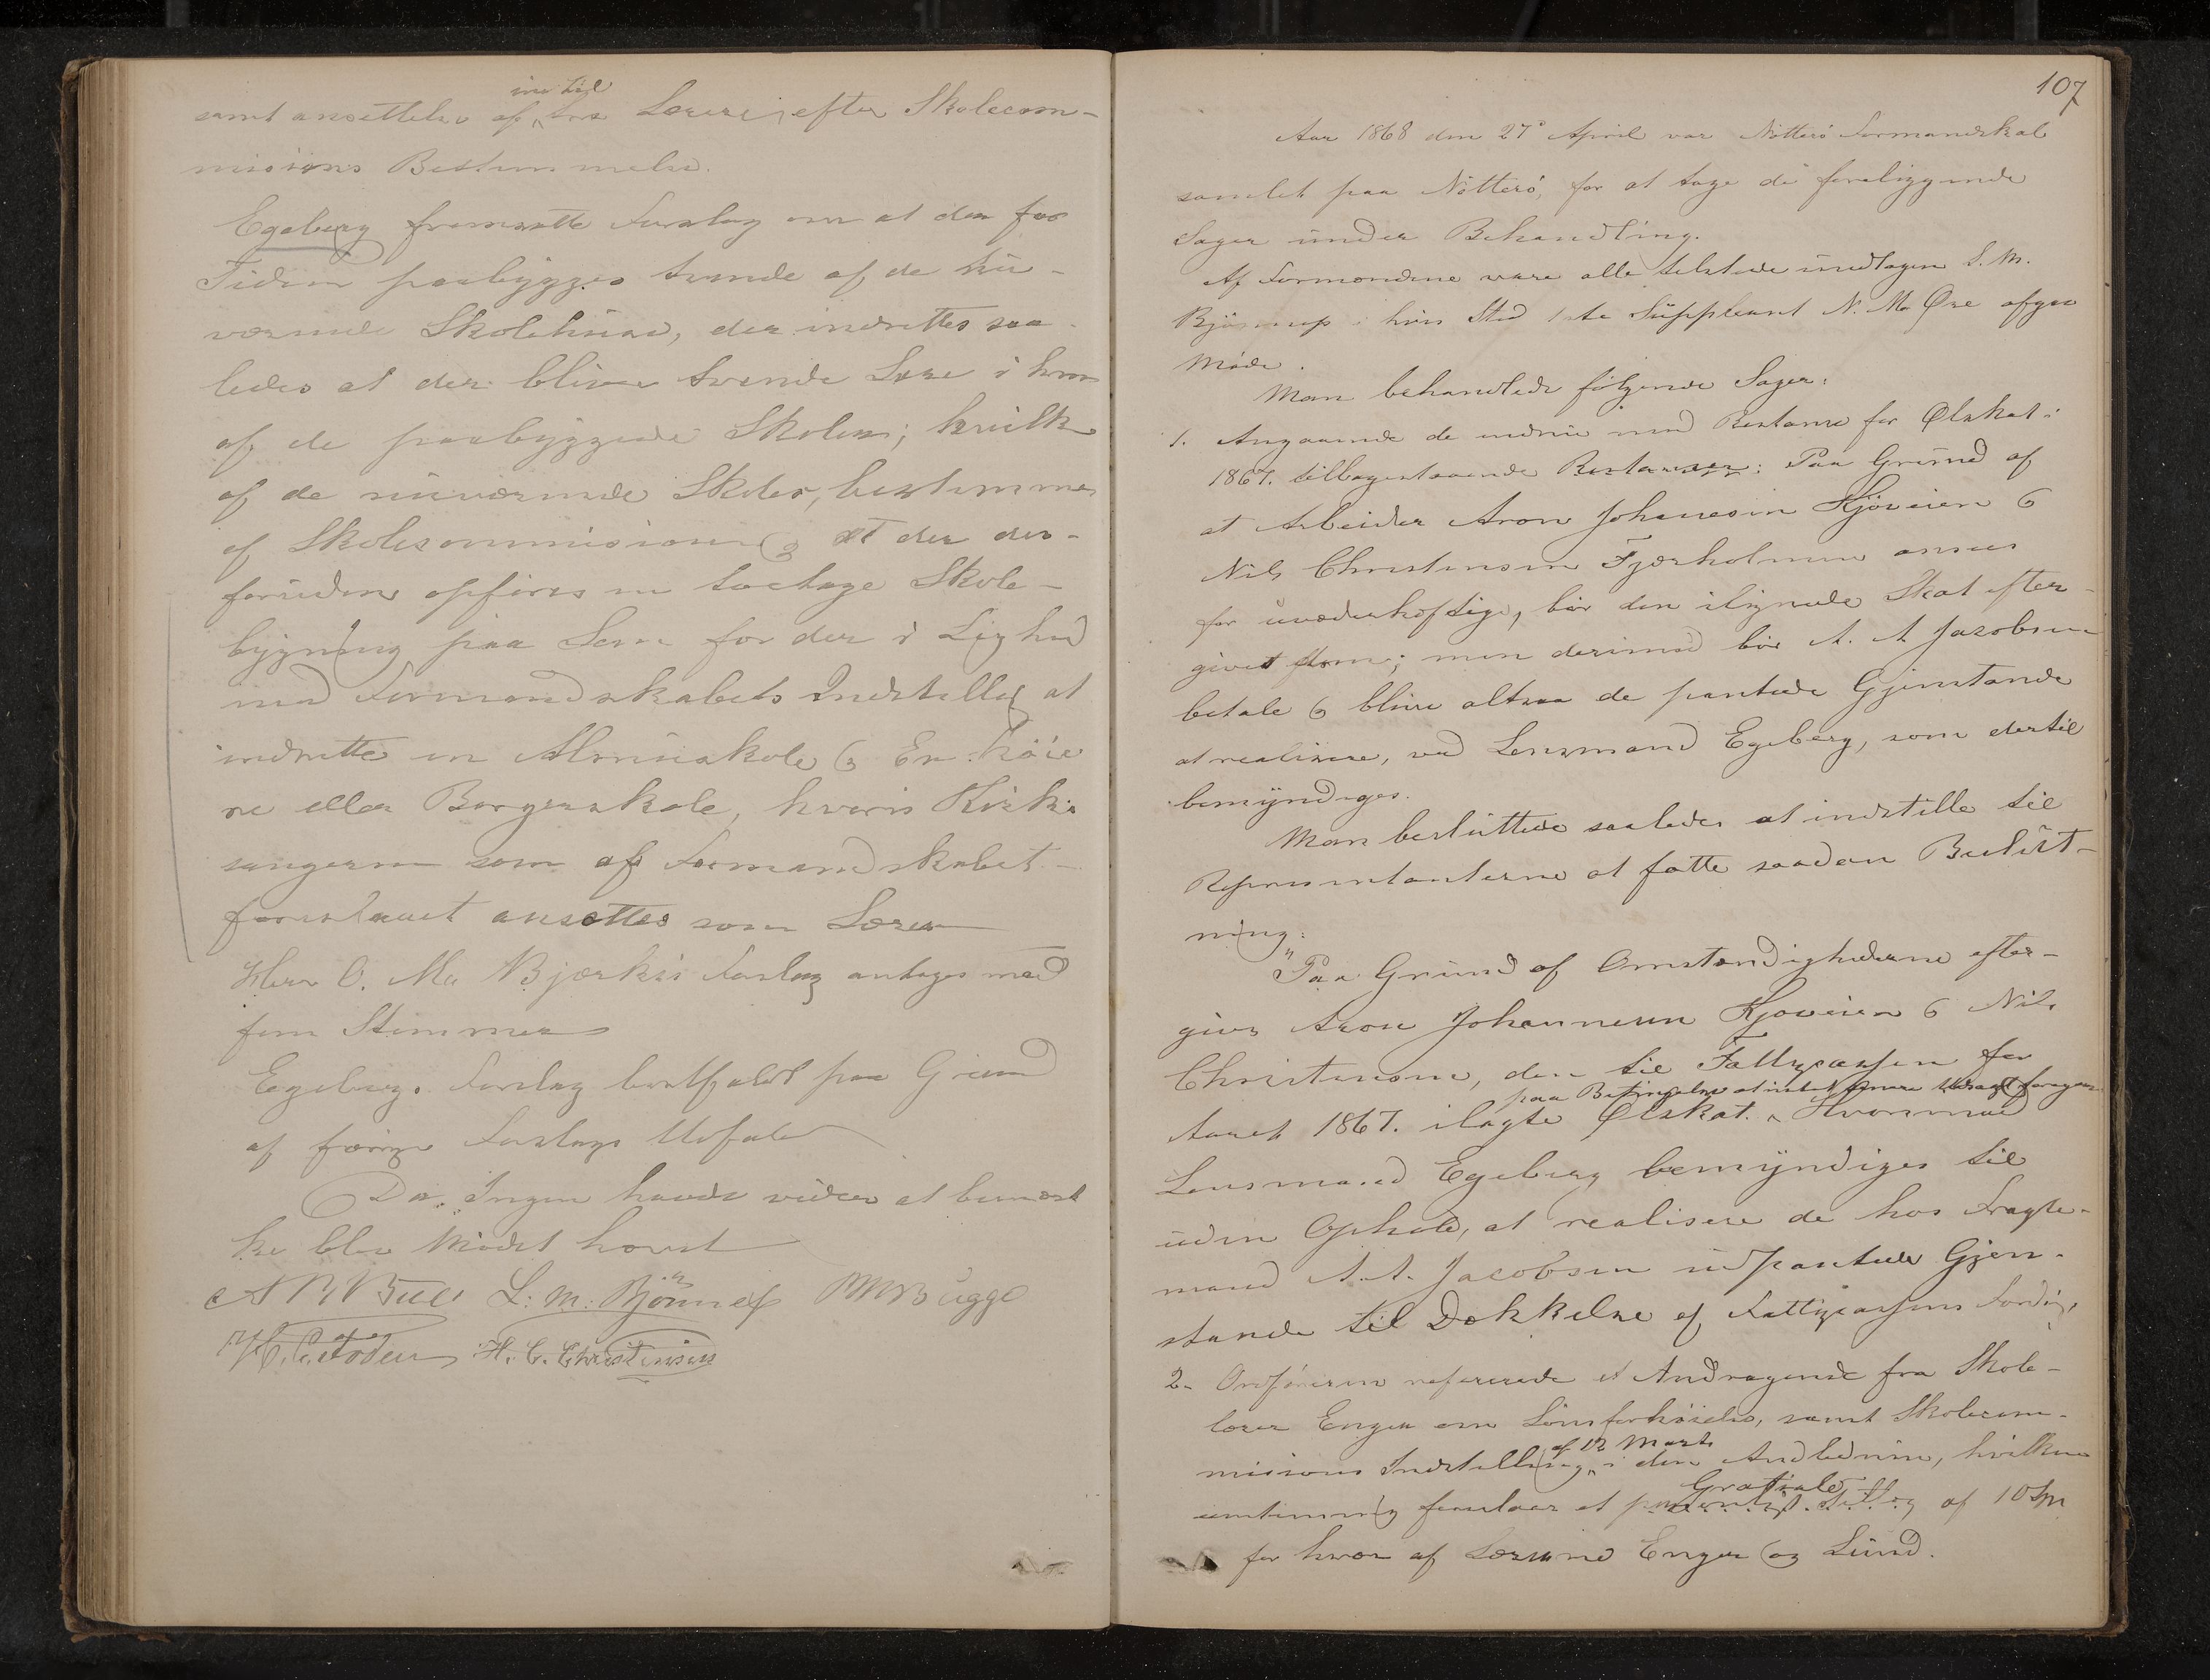 samt ansættelse af
ind til
tre Lærere, efter Skolecom-
missions Bestemmelse.
Egeberg fremsatte Forslag om at der for
Tiden paabygges tvende af de nu-
værende Skolehuse, der indrettes saa-
ledes at der bliver tvende Lære i hver
af de paabyggede Skoler; hvilke
af de nuværende Skoler, bestemmes
af Skolecommissionen og at der des-
foruden opføres en toetage Skole-
bygning paa Sem for der i Lighed
med Formandskabets Indstilling at
indrette en Almueskole og En høie
re eller Borgerskole, hvoris Kirke
sangeren som af Formandskabet
foreslaaet ansættes som Lærer
Herr O. Ms Bjerkøs Forslag antoges med
fem Stemmer
Egebergs Forslag bortfaldt paa Grund
af færre
Da Ingen havde videre at bemær
ke blev Mødet hævet
A R Bull L. M. Bjönnes MM Bugge
H. C. Christensen
107
Aar 1868 den 27de April var Nøtterø Formandskab
samlet paa Nøtterø, for at tage de foreliggende
Sager under Behandling.
Af Formændene vare alle tilstede undtagen L. M.
Bjönnes i hvis Sted 1ste Suppleant N. M. Øre afgav
Møde.
Man behandlede følgende Sager:
1. Angaaende de endnu med Restance for Ølskat i
1867. tilbagestaaende Restancer: Paa Grund af
at Arbeider Aron Johannesen Kjøveien og
Nils Christensen Fjærholmen ansees
for uvederhæftige, bør den ilignede Skat efter-
gives dem; men derimod bør A. A Jacobsen
betale og blive altsaa de pantede Gjenstande
at realisere, ved Lensmand Egeberg, som dertil
bemyndiges.
Man besluttede saaledes at indstille til
Repræsentanterne at fatte saadan Beslut-
ning:
"Paa Grund af Omstændighederne efter-
gives Aron Johannesen Kjøveien og Nils
Christensen, den til Fattigcassen for
paa Betingelse at intet
Aaret 1867. ilagte Ølskat. Hvormod
Lensmand Egeberg bemyndiges til
uden Ophold, at realisere de hos Fragte-
mand A. A. Jacobsen udpantede Gjen-
stande til Dækkelse af Fattigcassens Fordring.
2. Ordføreren refererede et Andragende fra Skole-
lærer Enger om Lønsforhøielse, samt Skolecom-
missions Indstilling
af 12 Marts
i den Anledning, hvilken
enstemmig foreslaar et
Gratiale
af 10 Spd
for hver af Lærerne Enger og Lund.